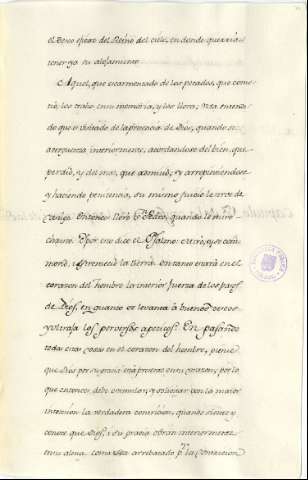 el Deseo que es del Reino del cielo, en donde quexaria
tener ya su alojamiento
Aquel, que escarmentado de los pecados, que come
tió, los traho en su memoria, y los llora, esta entien
do que es visitado de la presencia de Dios, quando se
averguenza interiormente, acordandose del bien, que
perdió, y del mal, que admitió, y arrepintiendose
y haciendo penitencia, su mismo juicio le sirve de
castigo. Entonces lloró Sn. Pedro, quando le miró
Christo. Por eso dice el Psalmo: se
movió, y se estremeció la tierra. Entonces entra en el
corazon del hombre la interior fuerza de los pasos
de Dios, en quanto se levanta à buenos deseos
y ultraja los perversos apetitos. En pasando
todas estas cosas en el corazon del hombre, piense
que Dios por su gracia está presente en su corazon, por lo
que entonces debe estimular y solicitar con la maior
intencion la verdadera contricion, quando siente y
conoce que Dios, y su gracia obran interiormente
en su alma. Como esta arribatado pr. la compuncion